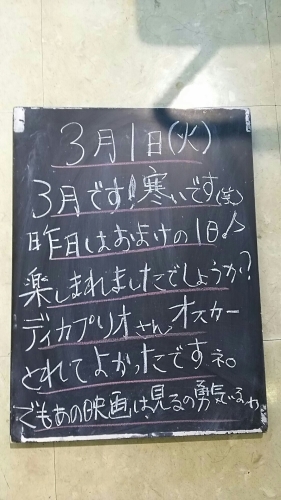 3月1日(火)
3月です!寒いです(笑)
昨日はおまけの1日♪
楽しまれましたでしょうか?
ディカプリオさん、オスカー
とれてよかったですネ。
でもあの映画は見るの勇気いるわ